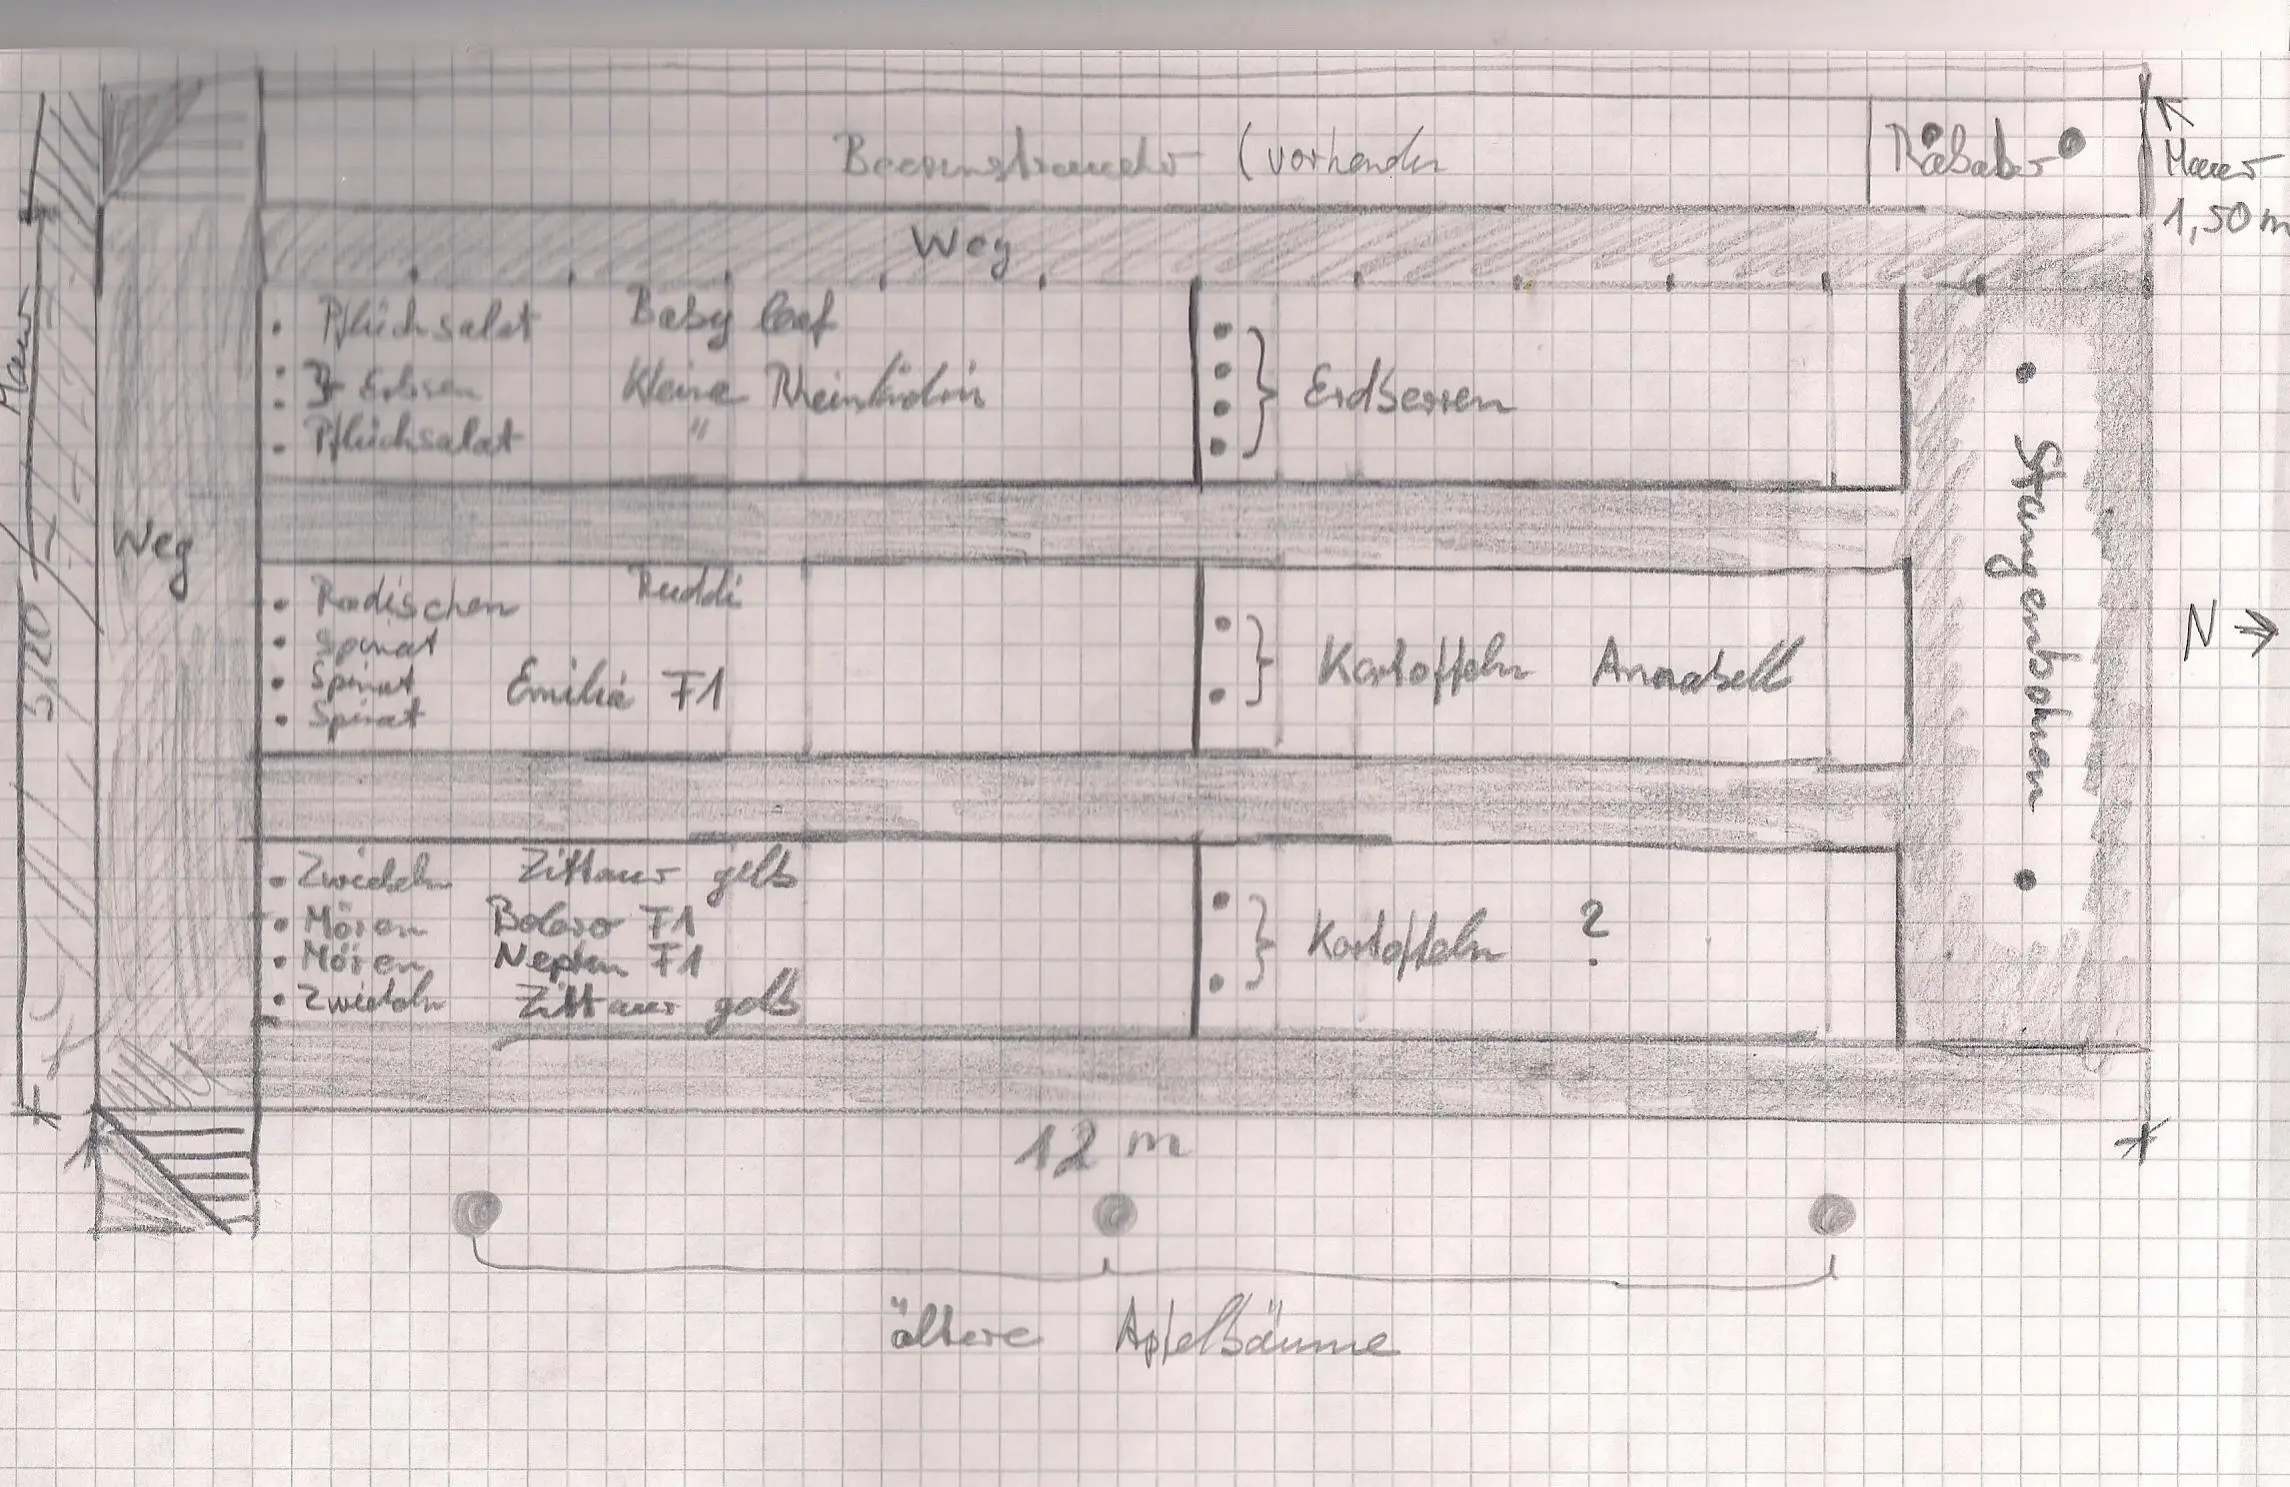 Beerensträucher (vorhanden
Rababer
Mauer
1,50 m
Weg
Pflücksalat Baby leaf
Erbsen Kleine Rheinländerin
Pflücksalat "
Erdbeeren
Mauer
Weg
5,20
Radischen Ruddi
Spinat
Spinat Emilia F1
Spinat
Kartoffeln Annabell
Stangenbohnen
N
Zwiebeln Zittauer gelb
Mören Bolero F1
Mören Neptun F1
Zwiebeln Zittauer gelb
Kartoffeln ?
12 m
ältere Apfelbäume